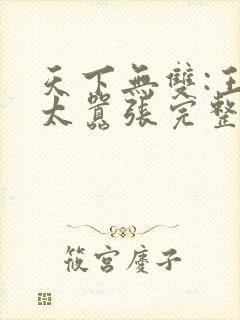 天下無雙:王
太囂張完整
筱宮慶子